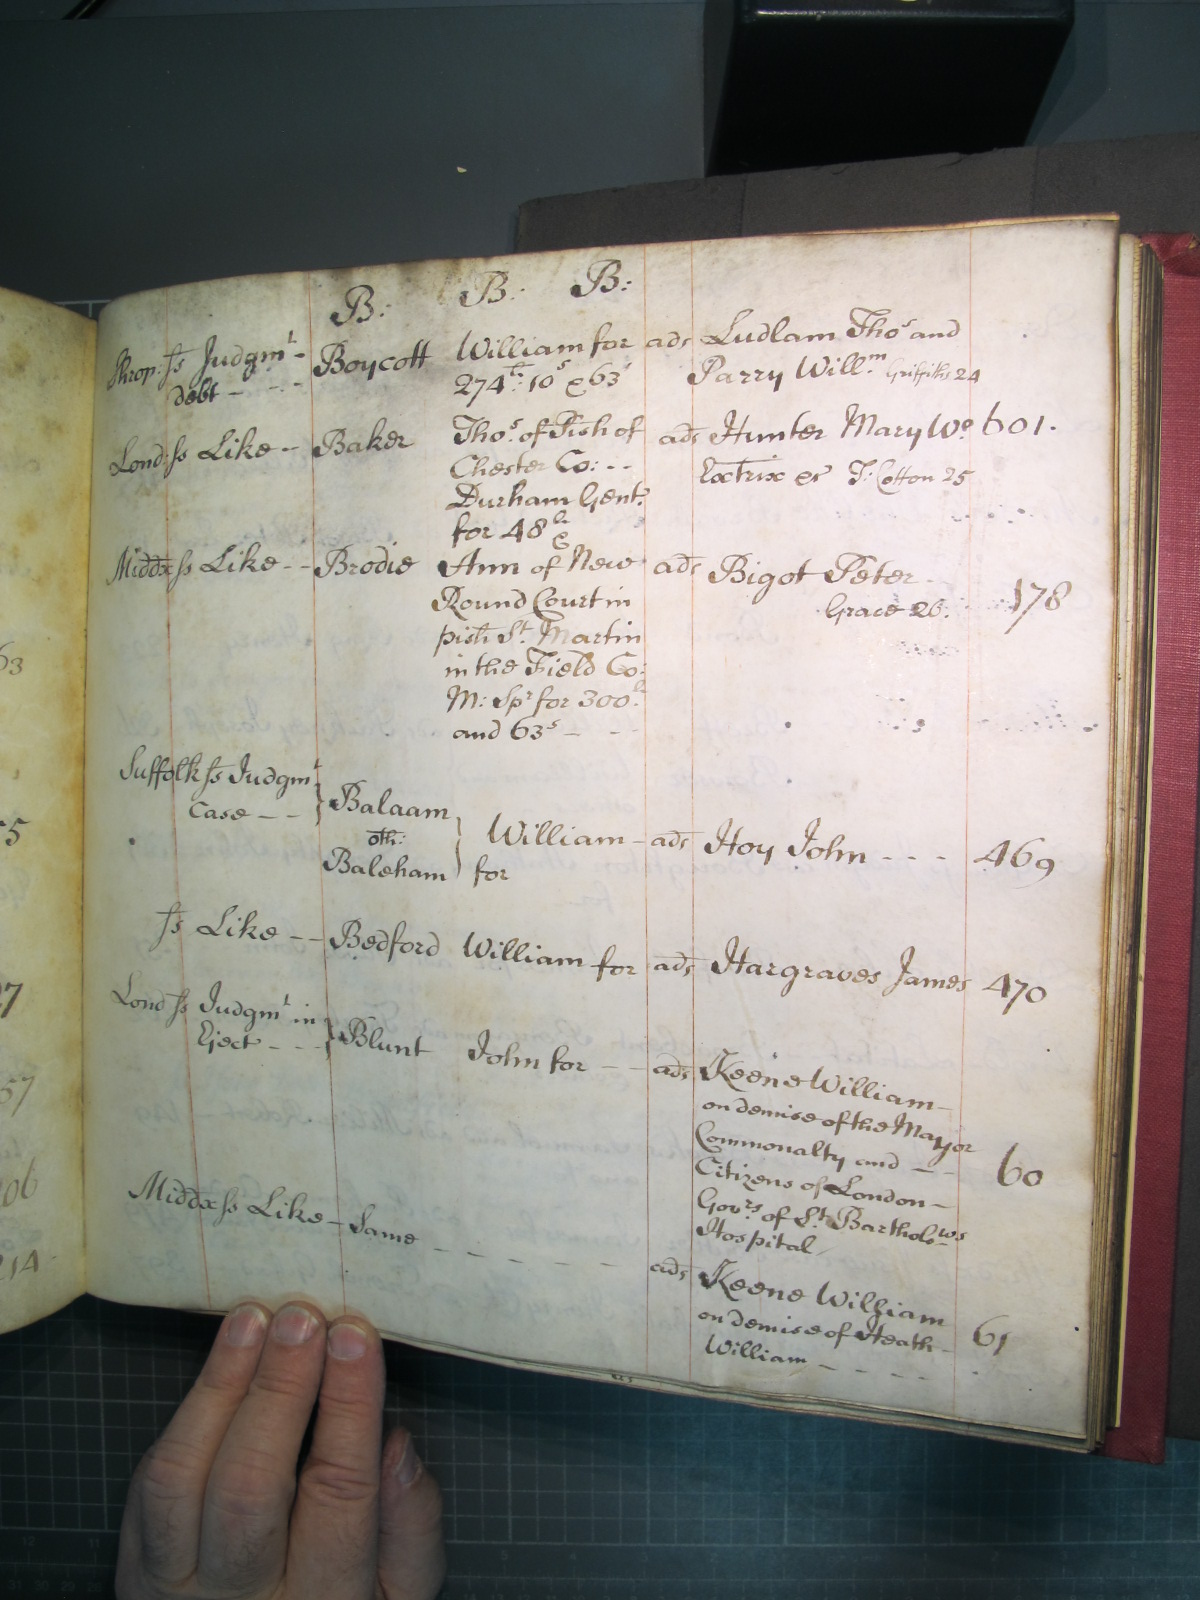 B: B: B:
Shrop: ss Judgmt - Boycott William for ads Ludlam Thos and
debt - - - 274li: 10s & 63s Parry Willm Griffiths 24
Lond: ss Like - - Baker Thos of Pish of ads Hunter Mary Wo 601.
Chester Co: - - Extrix &c T: Cotton 25
Durham Gent.
for 48li &
Middx ss Like - - Brodie Ann of New ads Bigot Peter -
Round Court in Grace 26. 178
pish St. Martin
in the Field Co:
M: Spr for 300li
and 63s - - -
Suffolk ss Judgmt
Case - - } Balaam
oth: } William - ads Hoy John - - - 469
Baleham for
ss Like - - Bedford William for ads Hargraves James 470
Lond ss Judgmt in
Eject - - - } Blunt John for - - ads Keene William -
on demise of the Mayor
Commonalty and - -
Citizens of London - 60
Govrs of St. Bartholowws
Hospital
Middx ss Like - Same - - - - - - ads Keene William
on demise of Heath - 61
William - - - -
63
55
7
57
06
214